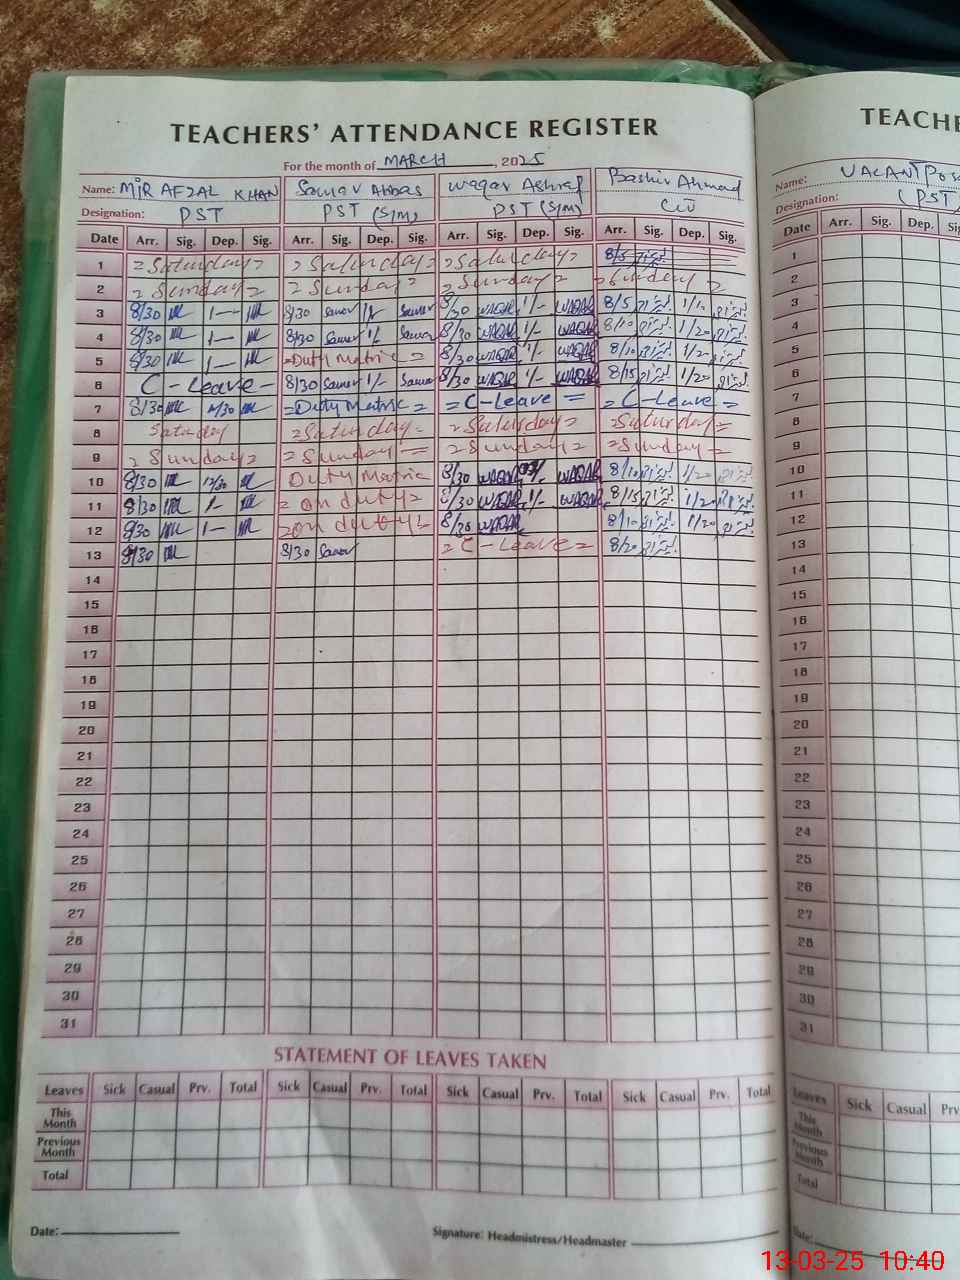 TEACHERS' ATTENDANCE REGISTER
For the month of MARCH, 2025
Name: MIR AFZAL KHAN Waqar Ashraf Bashir Ahmad
Designation: PST PST (S/M) PST (S/M)
Date Arr. Sig. Dep. Sig. Arr. Sig. Dep. Sig. Arr. Sig. Dep. Sig. Arr. Sig. Dep. Sig.
1 = Saturday = = Saturday = = Saturday = 8/5
2 = Sunday = = Sunday = = Sunday = = Sunday =
3 8/30 1— 8/30 1/- 8/30 WAQAR 1/- WAQAR 8/5 1/10
4 8/30 1— 8/30 1/- 8/30 WAQAR 1/- WAQAR 8/10 1/20
5 8/30 1— = Duty Matric = 8/30 WAQAR 1/- WAQAR 8/10 1/20
6 C - Leave - 8/30 1/- 8/30 WAQAR 1/- WAQAR 8/15 1/20
7 8/30 12/30 = Duty Matric = = C - Leave = = C - Leave =
8 Satuday = Saturday = = Saturday = = Saturday =
9 = Sunday = = Sunday = = Sunday = = Sunday =
10 8/30 12/30 Duty Matric 8/30 WAQAR WAQAR 8/10 1/20
11 8/30 1- = on duty = 8/30 WAQAR 1/- WAQAR 8/15 1/20
12 8/30 1— = on duty = 8/30 WAQAR 8/10 1/20
13 8/30 8/30 = C - Leave = 8/20
14
15
16
17
18
19
20
21
22
23
24
25
26
27
28
29
30
31
STATEMENT OF LEAVES TAKEN
Leaves Sick Casual Prv. Total Sick Casual Prv. Total Sick Casual Prv. Total Sick Casual Prv. Total
This Month
Previous Month
Total
Date: Signature: Headmistress/Headmaster
TEACHE
Name: VACANT Pos
Designation: (PST)
Date Arr. Sig. Dep.
1
2
3
4
5
6
7
8
9
10
11
12
13
14
15
16
17
18
19
20
21
22
23
24
25
26
27
28
29
30
31
Leaves Sick Casual Prv
This Month
Previous Month
Total
Date:
13-03-25 10:40